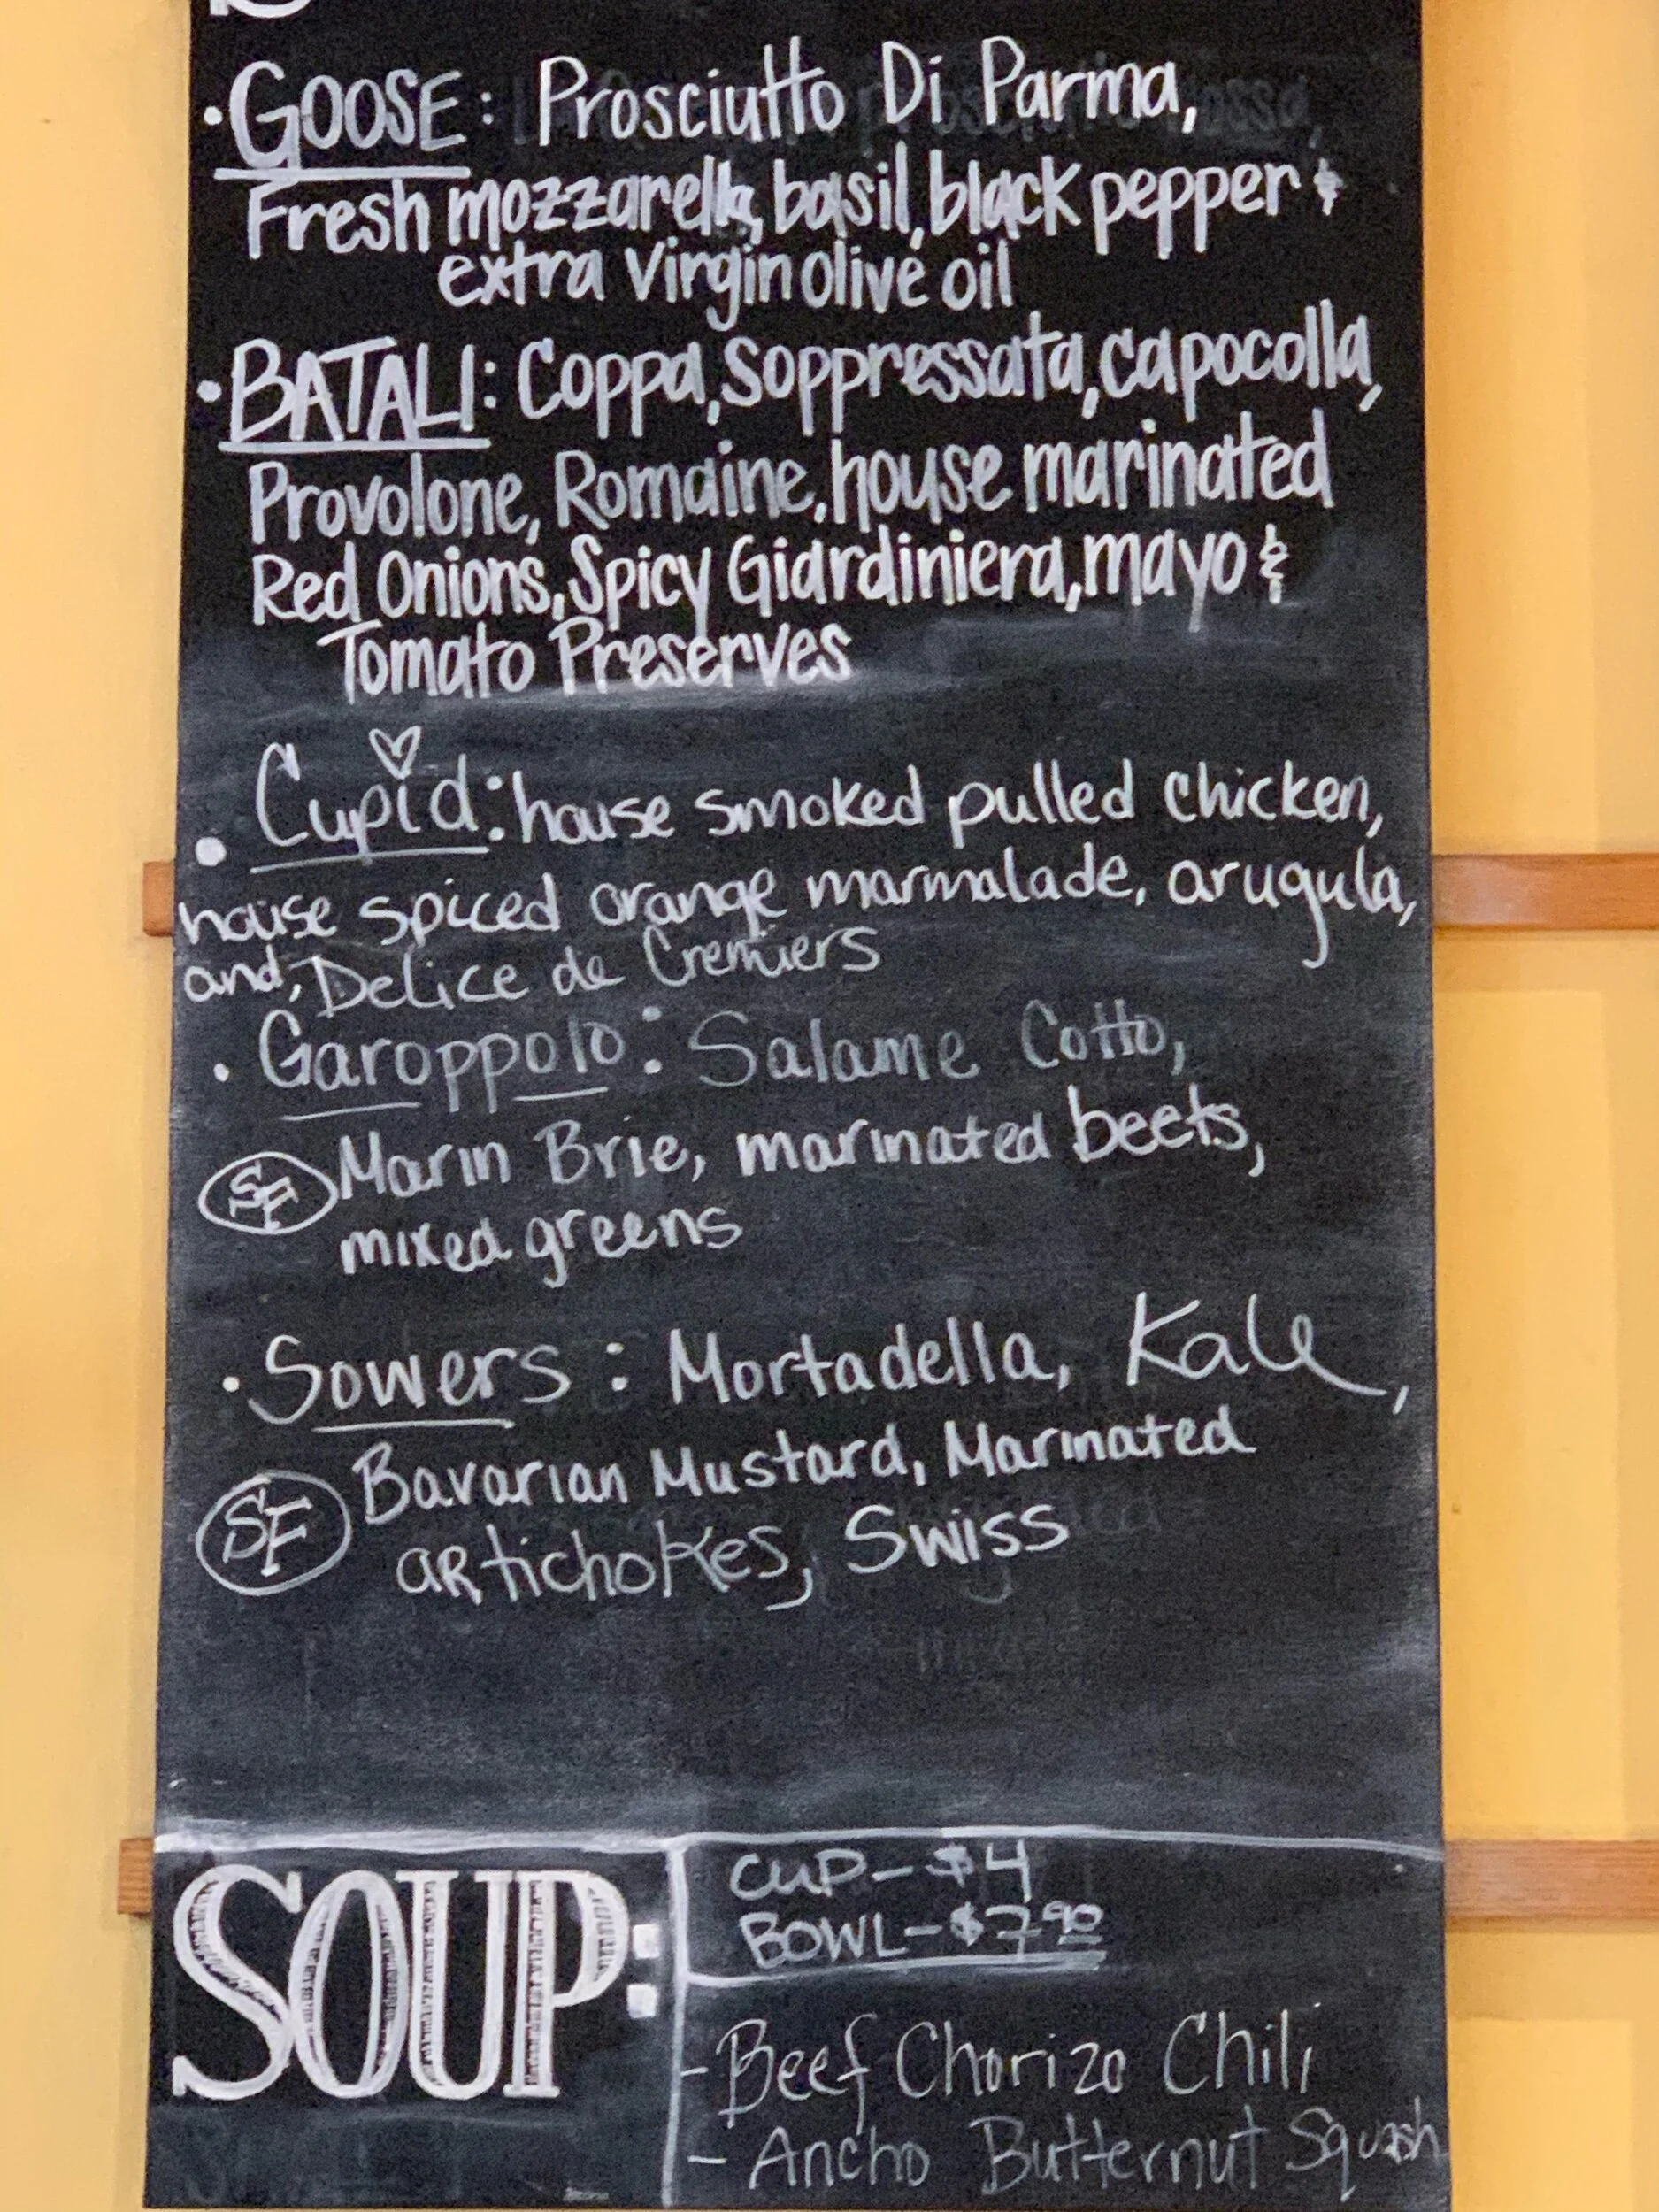 • GOOSE: Prosciutto Di Parma,
Fresh mozzarella, basil, black pepper &
extra Virgin olive oil
• BATALI: Coppa, Soppressata, Capocolla,
Provolone, Romaine, house marinated
Red Onions, Spicy Giardiniera, mayo &
Tomato Preserves
• Cupid: house smoked pulled chicken,
house spiced orange marmalade, arugula,
and, Delice de Cremiers
• Garoppolo: Salame Cotto,
SF Marin Brie, marinated beets,
mixed greens
• Sowers: Mortadella, Kale,
SF Bavarian Mustard, Marinated
artichokes, Swiss
SOUP:
CUP- $4
BOWL- $7.90
- Beef Chorizo Chili
- Ancho Butternut Squash